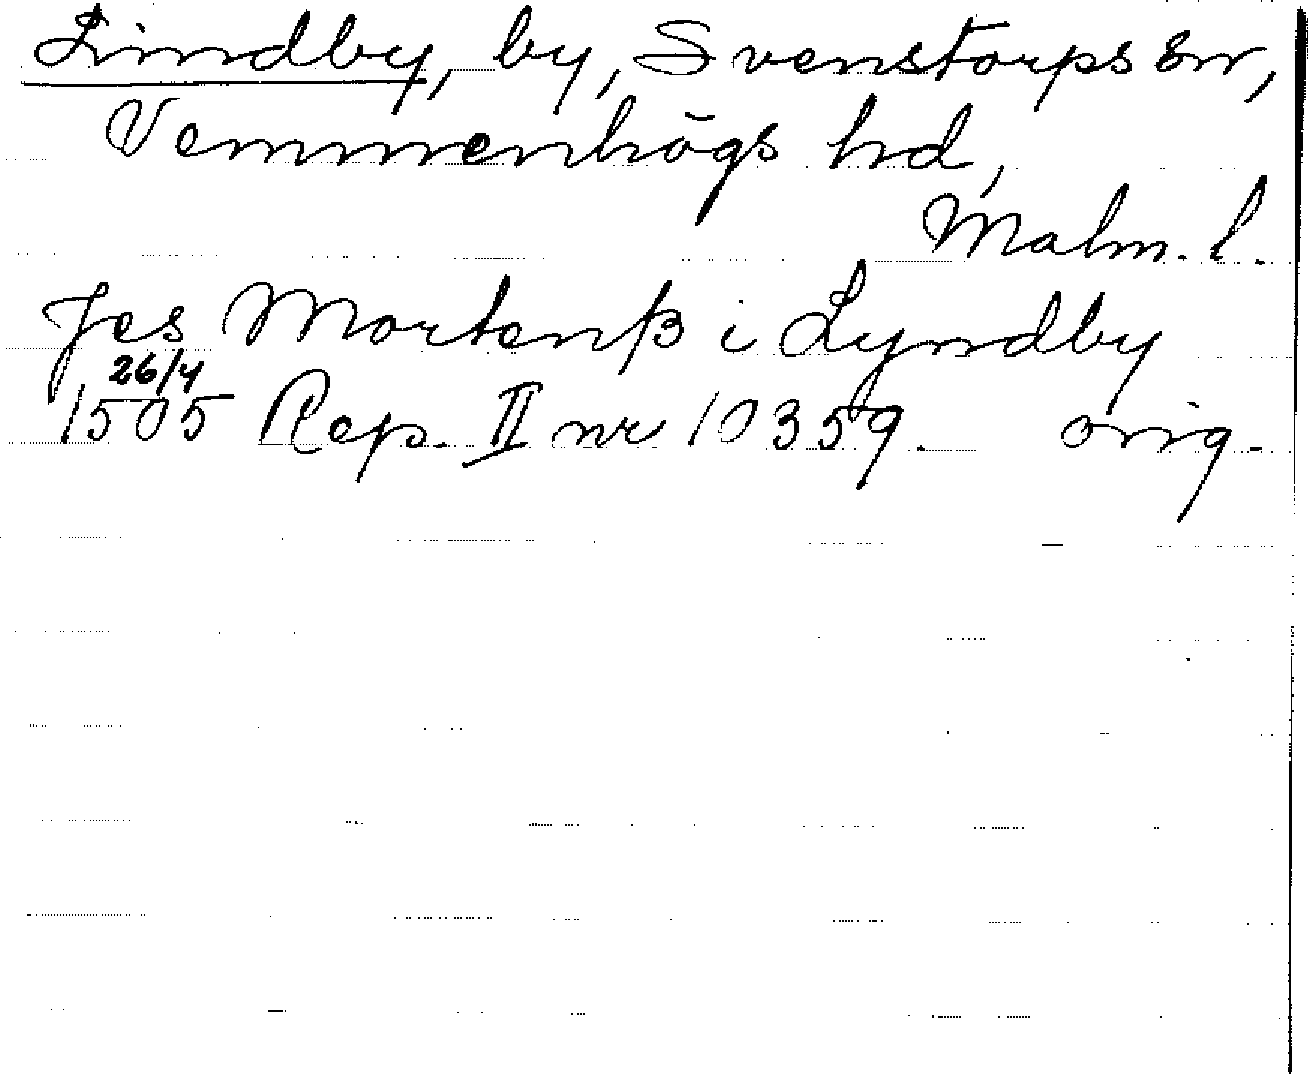 Lindby, by, Svenstorps sn,
Vemmenhögs hd,
Malm. l.
Jes Mortenß i Lyndby
26/4
1505 Rep. II nr 10359. orig.